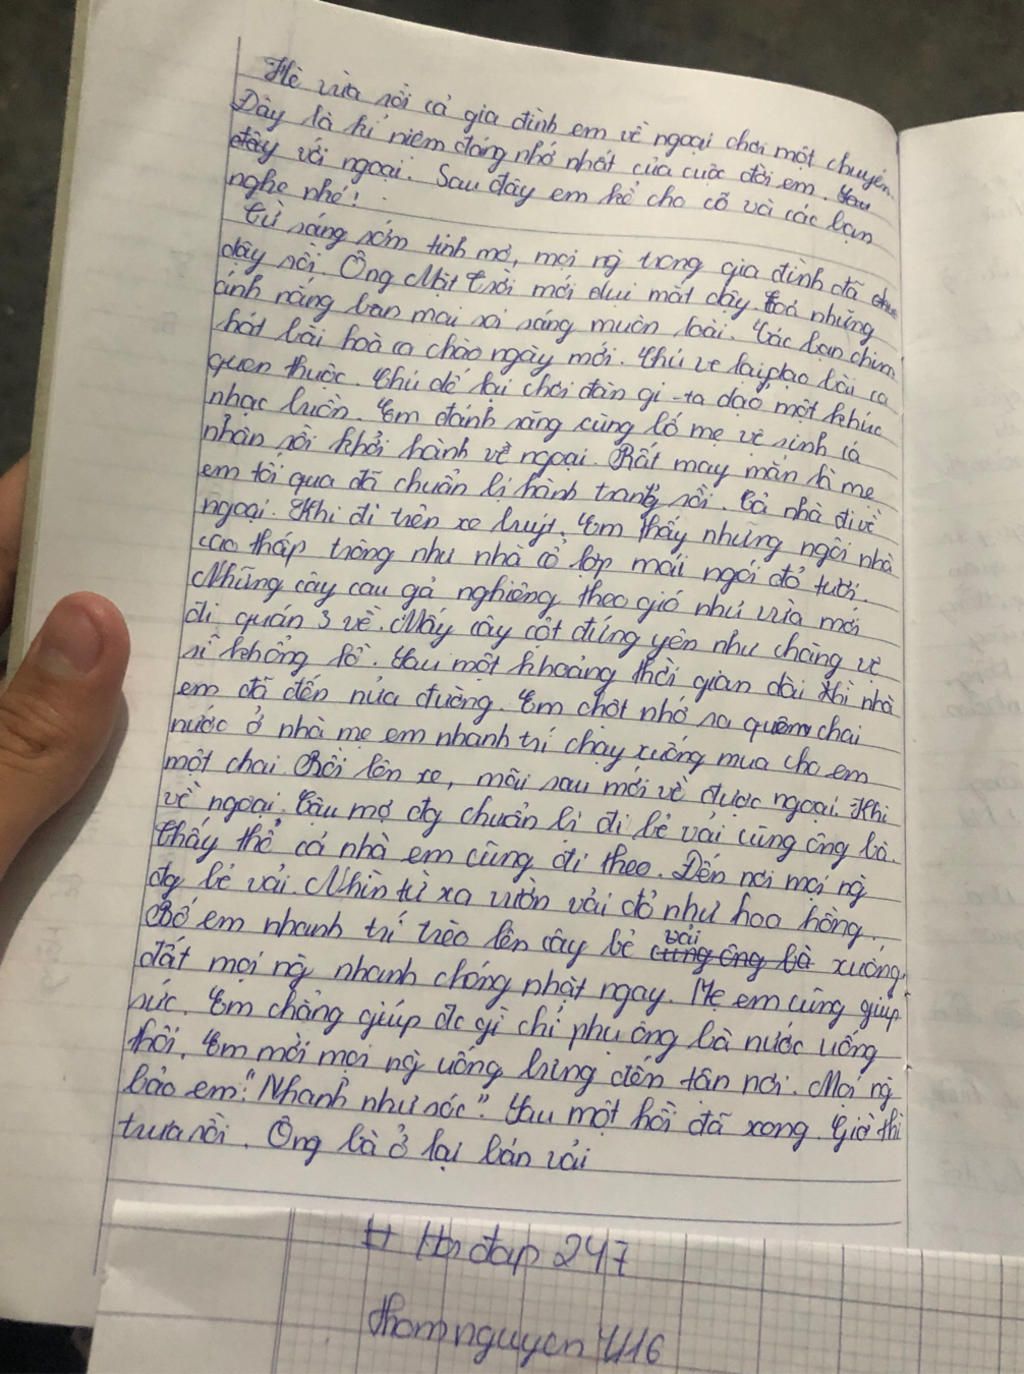 Hè vừa rồi cả gia đình em về ngoại chơi một chuyến.
Đây là kỉ niệm đáng nhớ nhất của cuộc đời em. Sau
đây với ngoại. Sau đây em kể cho cô và các bạn
nghe nhé!
Từ sáng sớm tinh mơ, mọi ng trong gia đình đã
dậy rồi. Ông Mặt Trời mới dụi mắt dậy. Toả những
ánh nắng ban mai rọi sáng muôn loài. Các bạn chim
hát bài hoà ca chào ngày mới. Chú ve lại dạo bài ca
quen thuộc. Chú dế lại chơi đàn gi-ta dạo một khúc
nhạc buồn. Em đánh răng cùng bố mẹ vệ sinh cá
nhân rồi khởi hành về ngoại. Rất may mắn là mẹ
em tối qua đã chuẩn bị hành trang rồi. Cả nhà đi về
ngoại. Khi đi trên xe buýt. Em thấy những ngôi nhà
cao thấp trông như nhà cổ lợp mái ngói đỏ tươi.
Những cây cau gả nghiêng theo gió như vừa mới
đi quán 3 về. Mấy cây cột đứng yên như chàng vệ
sĩ khổng lồ. Sau một khoảng thời gian dài thì nhà
em đã đến nửa đường. Em chợt nhớ ra quên chai
nước ở nhà mẹ em nhanh trí chạy xuống mua cho em
một chai. Rồi lên xe, mãi sau mới về được ngoại. Khi
về ngoại. Cậu mợ đg chuẩn bị đi bẻ vải cùng ông bà.
Thấy thế cả nhà em cũng đi theo. Đến nơi mọi ng
đg bẻ vải. Nhìn từ xa vườn vải đỏ như hoa hồng.
Bố em nhanh trí trèo lên cây bẻ vải cùng ông bà xuống
đất mọi ng nhanh chóng nhặt ngay. Mẹ em cũng giúp
sức. Em chẳng giúp đc gì chỉ phụ ông bà nước uống
thôi. Em mời mọi ng uống bưng đến tận nơi. Mọi ng
bảo em: "Nhanh như sóc". Sau một hồi đã xong. Giờ thì
trưa rồi. Ông bà ở lại bán vải
# Hỏi đáp 247
thomnguyen 4116